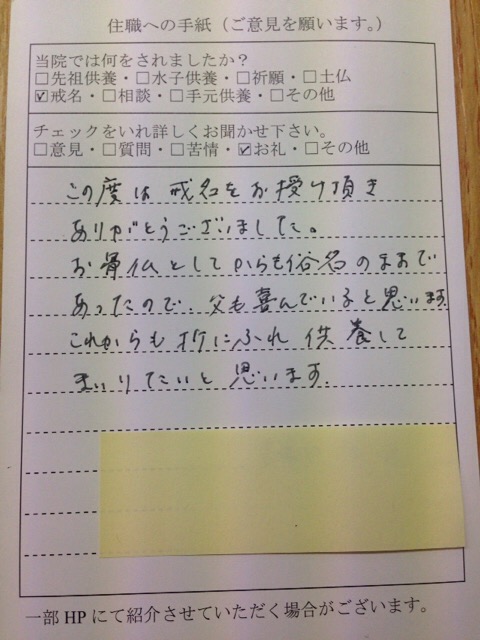 住職への手紙（ご意見を願います。）
当院では何をされましたか？
□先祖供養・□水子供養・□祈願・□土仏
☑戒名・□相談・□手元供養・□その他
チェックをいれ詳しくお聞かせ下さい。
□意見・□質問・□苦情・☑お礼・□その他
この度は戒名をお授け頂き
ありがとうございました。
お骨仏としてからも俗名のままで
あったので、父も喜んでいると思います
これからも折にふれ供養して
まいりたいと思います。
一部 HP にて紹介させていただく場合がございます。